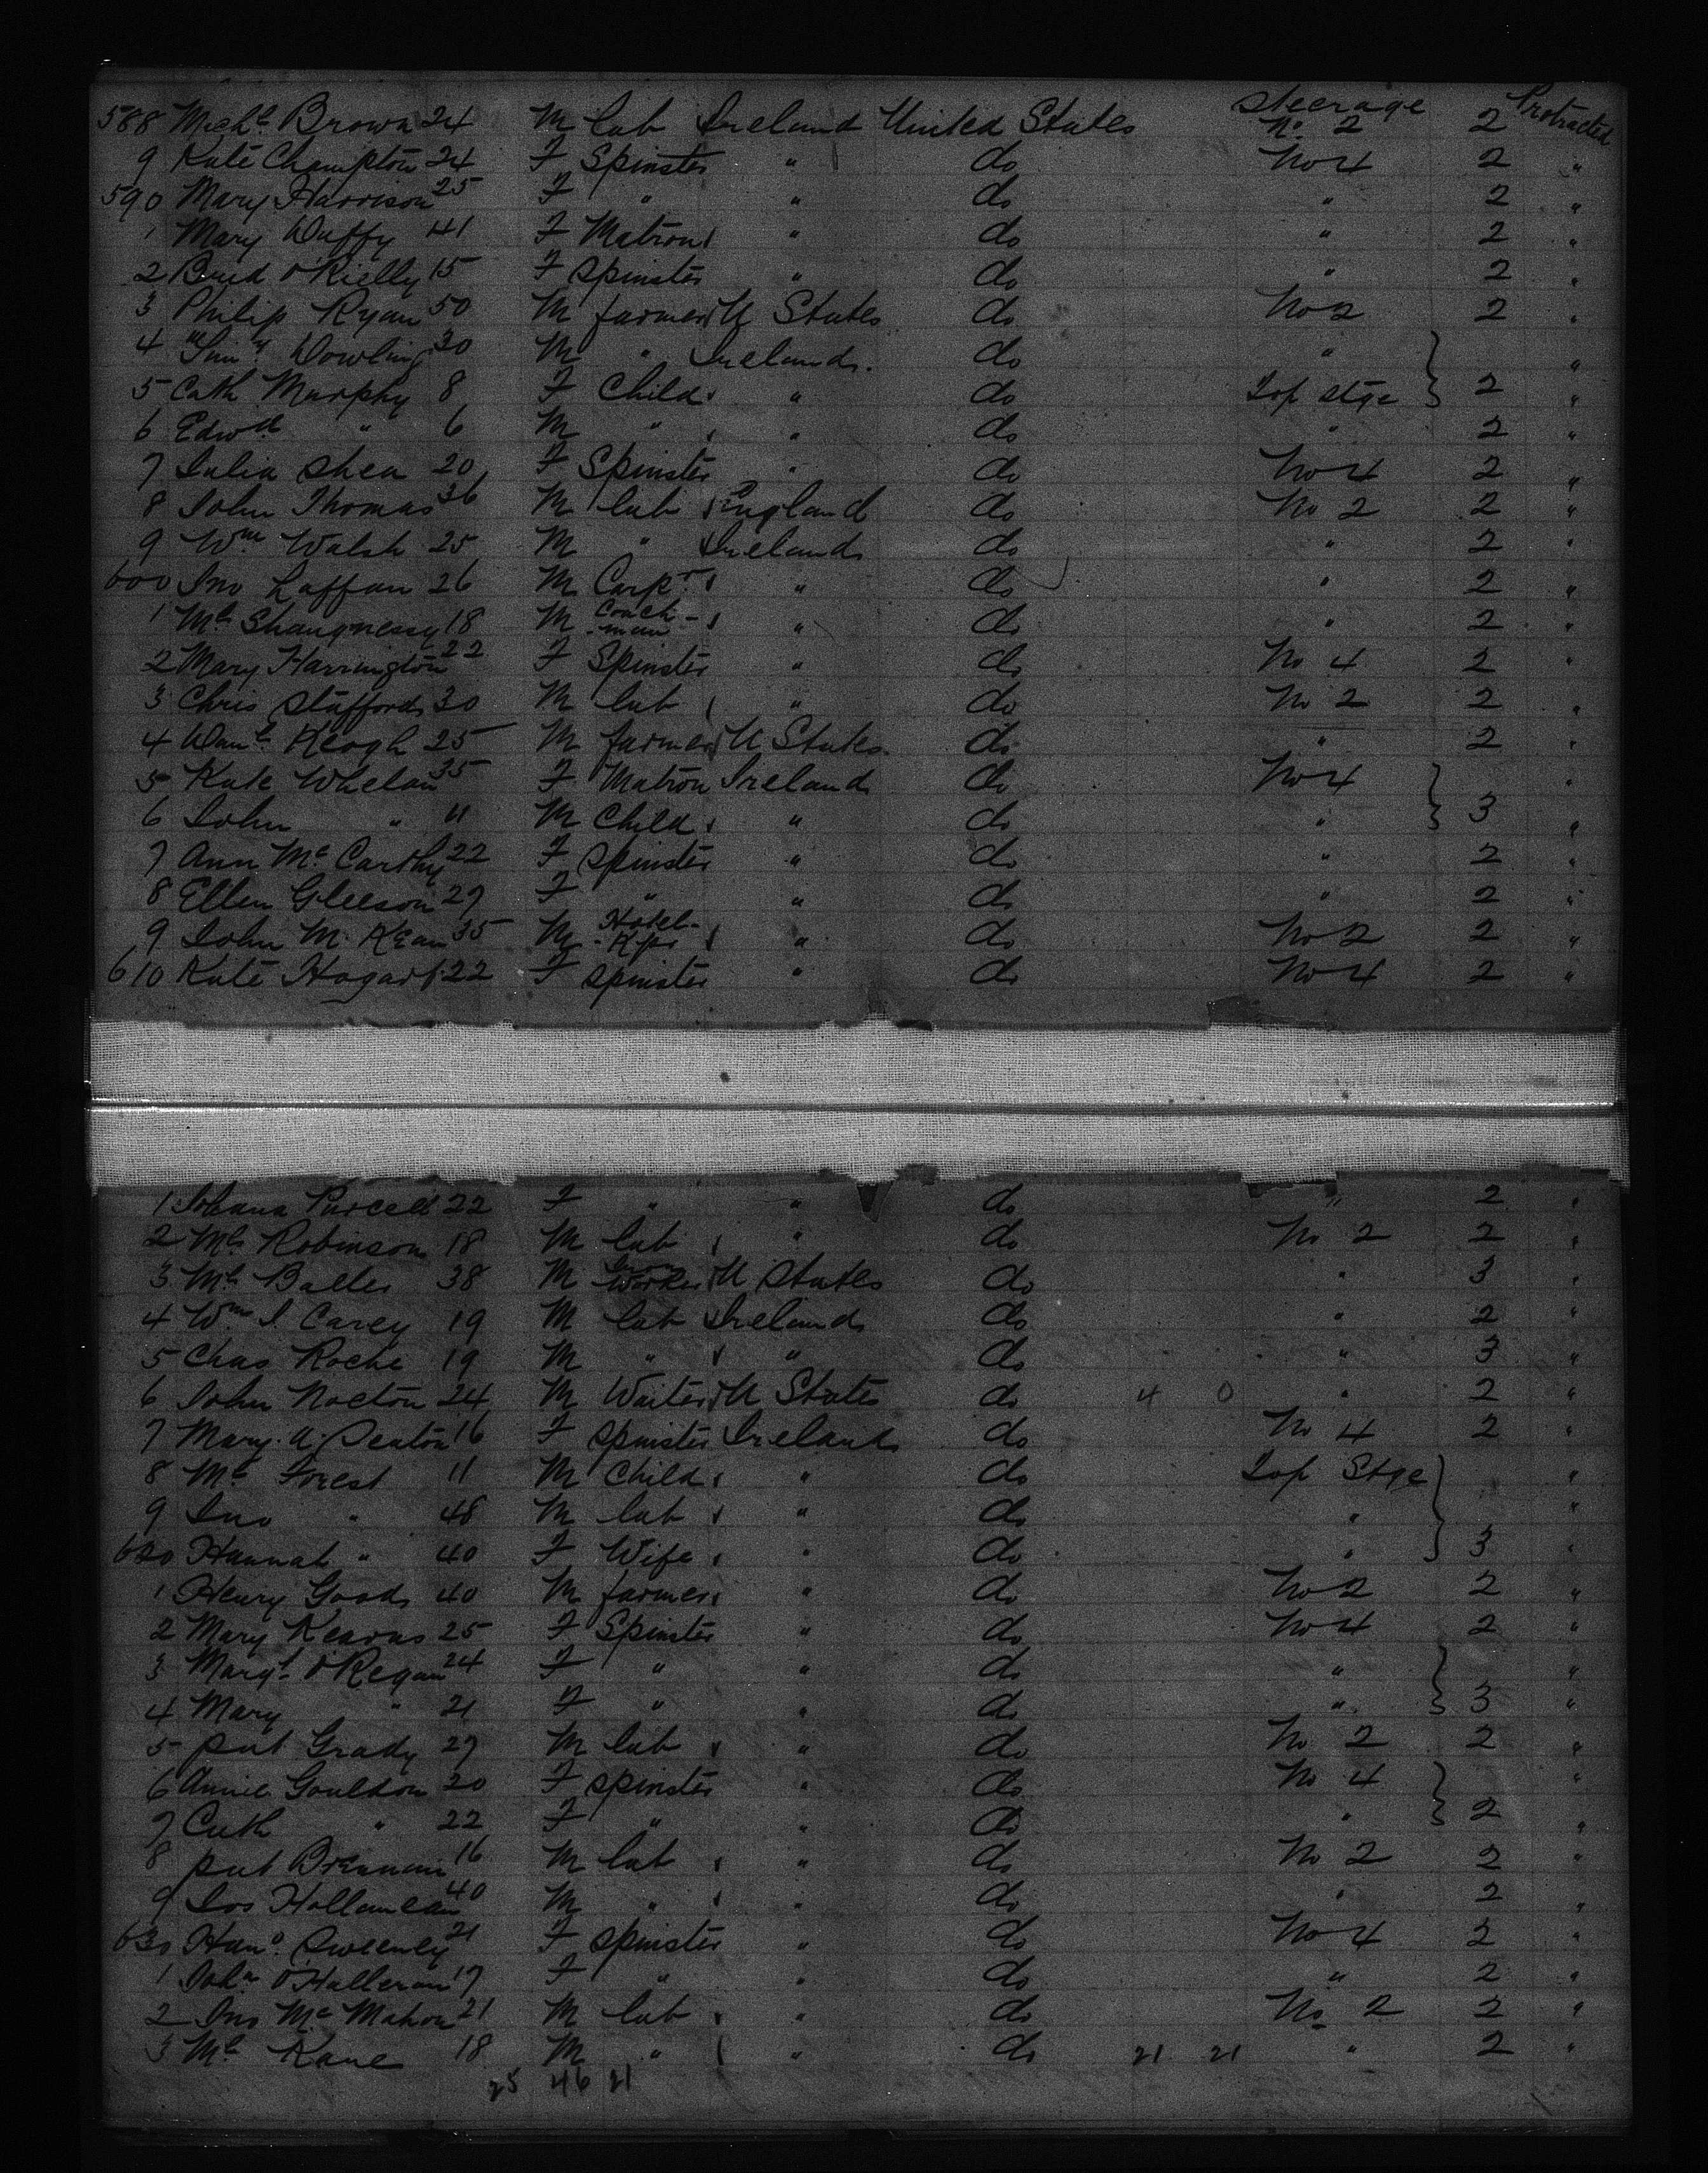 588 Michl Brown 24 M lab Ireland United States Steerage No 2 2 Protracted
9 Kate Champton 24 F Spinster " do No 4 2 "
590 Mary Harrison 25 F " " do " 2 "
1 Mary Duffy 41 F Matron " do " 2 "
2 Brid O'Rielly 15 F Spinster " do " 2 "
3 Philip Ryan 50 M farmer U States do No 2 2 "
4 Dowling 30 M " Ireland do " "
5 Cath Murphy 8 F Child " do Top Stge 2 "
6 Edwd " 6 M " " do " 2 "
7 Julia Shea 20 F Spinster " do No 4 2 "
8 John Thomas 36 M lab England do No 2 2 "
9 Wm Walsh 25 M " Ireland do " 2 "
600 Jno Laffan 26 M Carpr " do " 2 "
1 Ml Shaugnessy 18 M Coach-man " do " 2 "
2 Mary Harrington 22 F Spinster " do No 4 2 "
3 Chris Stafford 30 M lab " do No 2 2 "
4 Danl Keogh 25 M farmer U States do " 2 "
5 Kate Whelan 35 F Matron Ireland do No 4 "
6 John " 11 M Child " do " 3 "
7 Ann McCarthy 22 F Spinster " do " 2 "
8 Ellen Gleeson 27 F " " do " 2 "
9 John M. Kean 35 M Hotel-Kpr " do No 2 2 "
610 Kate Hogart 22 F Spinster " do No 4 2 "
1 Johana Purcell 22 F " " do " 2 "
2 Ml Robinson 18 M lab " do No 2 2 "
3 Ml Balles 38 M Iron Worker U States do " 3 "
4 Wm J. Carey 19 M lab Ireland do " 2 "
5 Chas Roche 19 M " " do " 3 "
6 John Nocton 24 M Waiter U States do 4 0 " 2 "
7 Mary A. Penton 16 F Spinster Ireland do No 4 2 "
8 Ml Forest 11 M Child " do Top Stge "
9 Jno " 48 M lab " do " "
620 Hannah " 40 F Wife " do " 3 "
1 Henry Goods 40 M farmer " do No 2 2 "
2 Mary Kearns 25 F Spinster " do No 4 2 "
3 Margt O'Regan 24 F " " do " "
4 Mary " 21 F " " do " 3 "
5 Pat Grady 27 M lab " do No 2 2 "
6 Annie Gouldon 20 F Spinster " do No 4 "
7 Cath " 22 F " " do " 2 "
8 Pat Brennan 16 M lab " do No 2 2 "
9 Jos Hollanean 40 M " " do " 2 "
630 Hano Sweeney 21 F Spinster " do No 4 2 "
1 Joha O'Halleran 17 F " " do " 2 "
2 Jno McMahon 21 M lab " do No 2 2 "
3 Ml Kane 18 M " " do 21 21 " 2 "
25 46 21